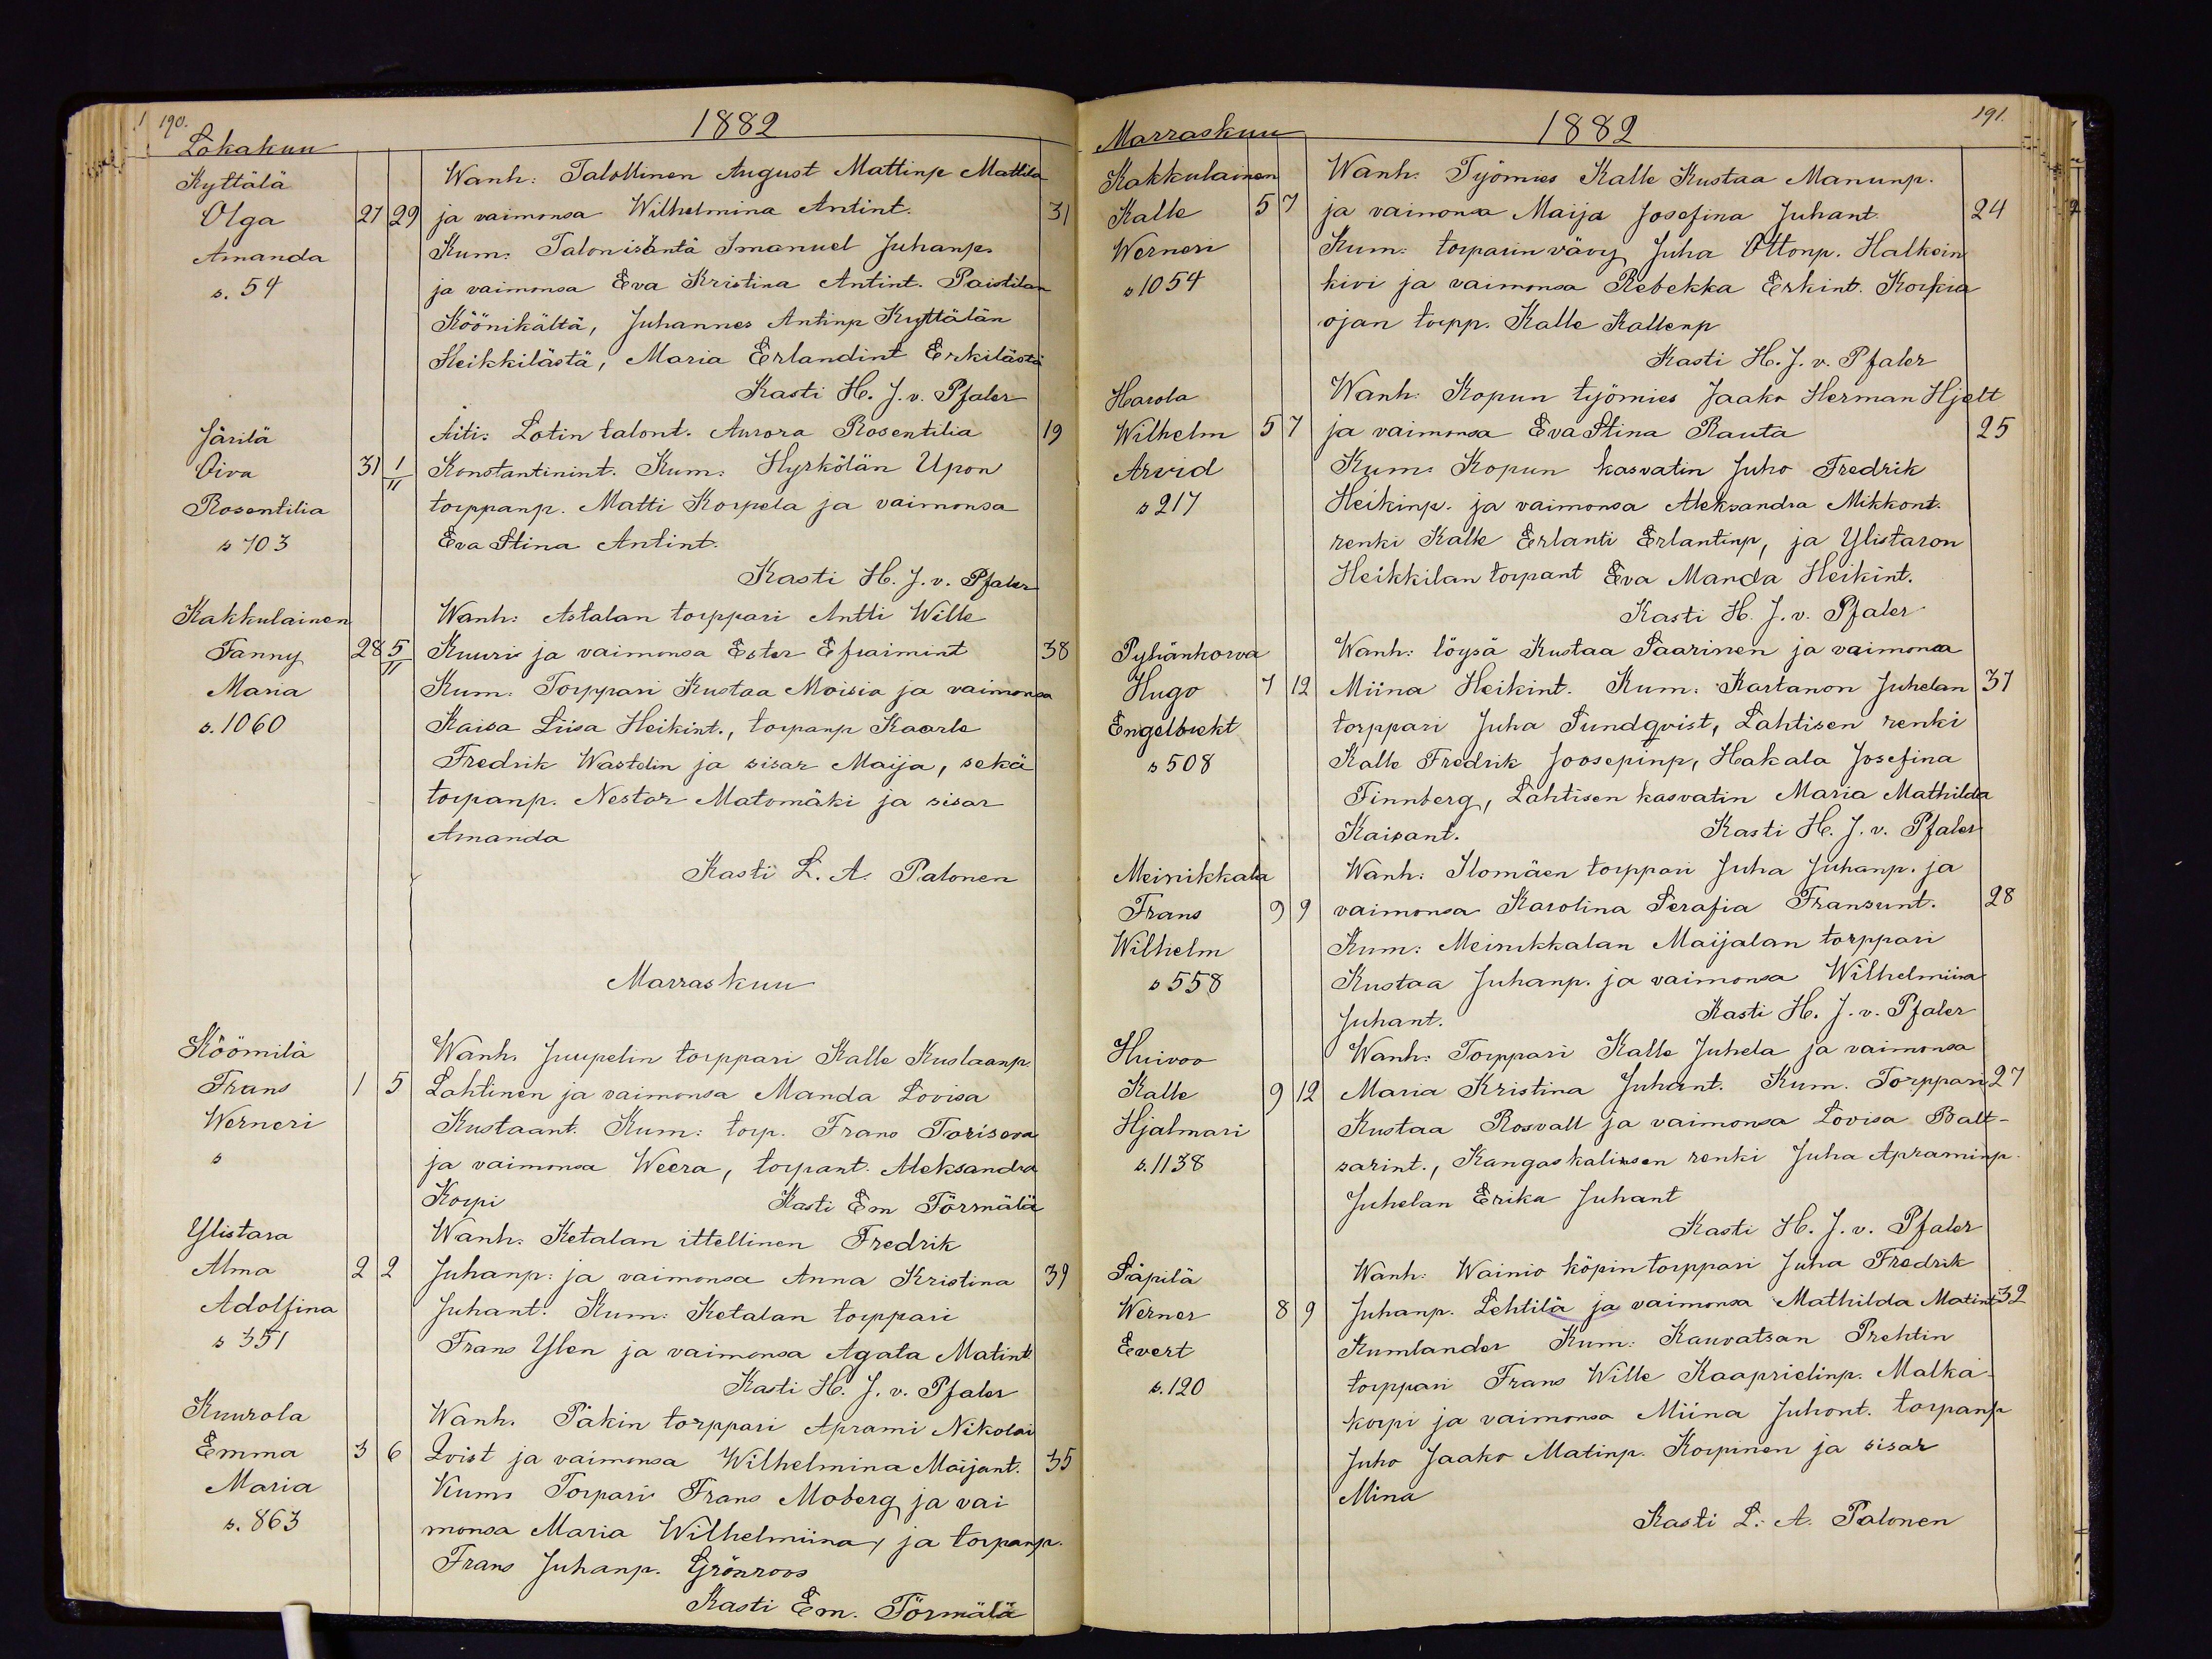 190.
1882
Lokakuu
Kyttälä Wanh: Talollinen August Mattinp Mattila
Olga 27 29 ja vaimonsa Wilhelmina Antint. 31
Amanda Kum: Talonisäntä Imanuel Juhanp.
s. 54 ja vaimonsa Eva Kristina Antint. Paistilan
Köönikältä, Juhannes Antinp Kyttälän
Heikkilästä, Maria Erlandint Erkilästä
Kasti H. J. v. Pfaler
Järilä Äiti: Lotin talont. Aurora Rosentilia 19
Oiva 31 1/11 Konstantinint. Kum: Hyrkölän Upon
Rosentilia torppanp. Matti Korpela ja vaimonsa
s 703 Eva Stina Antint.
Kasti H. J. v. Pfaler
Kakkulainen Wanh: Astalan torppari Antti Wille
Fanny 28 5/11 Kuuri ja vaimonsa Ester Efraimint 38
Maria Kum: Torppari Kustaa Moisio ja vaimonsa
s. 1060 Kaisa Liisa Heikint., torpanp Kaarle
Fredrik Wastelin ja sisar Maija, sekä
torpanp. Nestor Matomäki ja sisar
Amanda
Kasti L. A. Palonen
Marraskuu
Köömilä Wanh. Juupelin torppari Kalle Kustaanp.
Frans 1 5 Lahtinen ja vaimonsa Manda Lovisa
Werneri Kustaant. Kum: torp. Frans Torisova
s ja vaimonsa Weera, torpant. Aleksandra
Korpi Kasti Em Törmälä
Ylistara Wanh. Ketalan ittellinen Fredrik
Alma 2 2 Juhanp: ja vaimonsa Anna Kristina 39
Adolfina Juhant. Kum: Ketalan torppari
s 351 Frans Ylen ja vaimonsa Agata Matint
Kasti H. J. v. Pfaler
Kuurola Wanh. Päkin torppari Aprami Nikolai
Emma 3 6 Qvist ja vaimonsa Wilhelmina Maijant. 35
Maria Kum: Torpari Frans Moberg ja vai
s. 863 monsa Maria Wilhelmiina, ja torpanp.
Frans Juhanp. Grönroos
Kasti Em. Törmälä
191.
1882
Marraskuu
Kakkulainen Wanh. Työmies Kalle Kustaa Manunp.
Kalle 5 7 ja vaimonsa Maija Josefina Juhant. 24
Werneri Kum: torparin vävy Juha Ottonp. Halkein
s 1054 kivi ja vaimonsa Rebekka Erkint. Korkia
ojan torpp. Kalle Kallenp
Kasti H. J. v. Pfaler
Harola Wanh: Kopun työmies Jaako Herman Hjelt
Wilhelm 5 7 ja vaimonsa Eva Stina Rauta 25
Arvid Kum: Kopun kasvatin Juho Fredrik
s 217 Heikinp. ja vaimonsa Aleksandra Mikkont.
renki Kalle Erlanti Erlantinp, ja Ylistaron
Heikkilan torpant Eva Manda Heikint.
Kasti H. J. v. Pfaler
Pyhänkorva Wanh: löysä Kustaa Saarinen ja vaimonsa
Hugo 7 12 Miina Heikint. Kum: Kartanon Juhelan 37
Engelbrekt torppari Juha Sundqvist, Lahtisen renki
s 508 Kalle Fredrik Joosepinp, Hakala Josefina
Finnberg, Lahtisen kasvatin Maria Mathilda
Kaisant. Kasti H. J. v. Pfaler
Meinikkala Wanh: Ilomäen torppari Juha Juhanp. ja
Frans 9 9 vaimonsa Karolina Serafia Fransunt. 28
Wilhelm Kum: Meinikkalan Maijalan torppari
s 558 Kustaa Juhanp. ja vaimonsa Wilhelmiina
Juhant. Kasti H. J. v. Pfaler
Huivoo Wanh: Torppari Kalle Juhela ja vaimonsa
Kalle 9 12 Maria Kristina Juhant. Kum. Torppari 27
Hjalmari Kustaa Rosvall ja vaimonsa Lovisa Balt-
s. 1138 sarint., Kangaskalinsen renki Juha Apraminp.
Juhelan Erika Juhant
Kasti H. J. v. Pfaler
Säpilä Wanh: Wainio köpin torppari Juha Fredrik
Werner 8 9 Juhanp. Lehtilä ja vaimonsa Mathilda Matint 32
Evert Kumlander Kum: Kauvatsan Prehtin
s. 120 torppari Frans Wille Kaaprielinp. Malka-
korpi ja vaimonsa Miina Juhont. torpanp
Juho Jaako Matinp. Korpinen ja sisar
Mina
Kasti L. A. Palonen